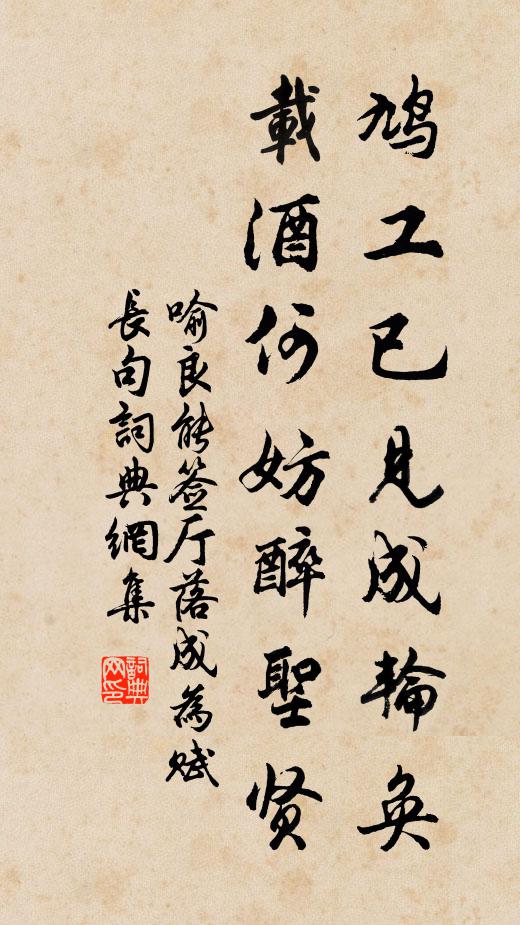 鳩工已見成輪奐
載酒何妨醉聖贤
喻良能签厅落成為赋
長句詞典網集
詞典
网印